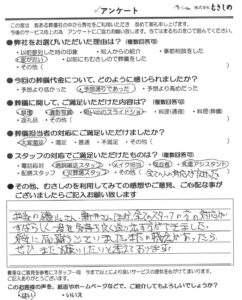 アンケート
株式会社 ときしめ
この度は 数ある葬儀社の中から弊社をご利用いただき 誠に有難う御座いました。
今後のサービス向上の為 アンケートにご協力お願い致します。当てはまるものを○で囲んでください。
●弊社をお選びいただいた理由は？（複数回答可）
・以前参列した時の印象 ・知人からの紹介 ・事前相談をした
・家が近い ・以前にもむさしの葬儀をした
・その他（ ）
●今回の葬儀代金について、どのように感じられましたか？
・予想より低かった ・予想通りであった ・予想より高かった
●葬儀に関して、ご満足いただけた内容は？（複数回答可）
・祭壇 ・遺影写真 ・思い出のスライドショー ・料理（通夜） ・料理（葬儀）
・返礼品 ・その他（ ）
●葬儀担当者の対応にご満足いただけましたか？
・大変満足 ・満足 ・普通 ・不満足 ・その他（ ）
●スタッフの対応でご満足いただけたものは？（複数回答可）
・電話応対 ・ ・メイク担当 ・司会者 ・式場アシスタント
・配膳スタッフ ・火葬場スタッフ ・その他（ ）
●その他、むさしのを利用してみての感想やご意見、ご心配な事が
ございましたらご記入お願い致します
担当の さん、 さん はじめ全てのスタッフの方の対応が
すばらしく、母を気持ち良く送り出す事ができました。
ぜひ またお願いしたいと考えております
貴重なご意見を参考にスタッフ一同 今まで以上により良いサービスの提供をめざしてまいります。
ご記入ありがとうございました。
このお客様の声を、紙面やホームページなどで、ご紹介してもよろしいでしょうか？
はい ・ いいえ